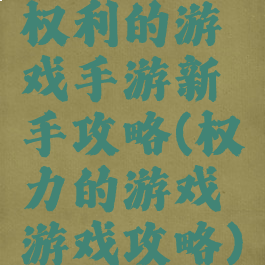 权利的游
戏手游新
手攻略(权
力的游戏
游戏攻略)